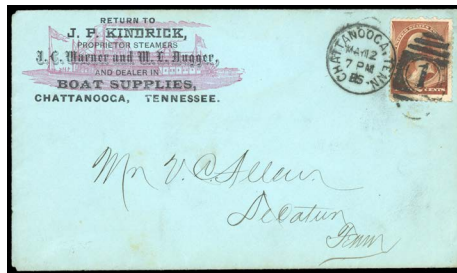 RETURN TO
J. P. KINDRICK,
PROPRIETOR STEAMERS
J. C. Warner and W. L. Dugger,
AND DEALER IN
BOAT SUPPLIES,
CHATTANOOGA, TENNESSEE.
CHATTANOOGA, TENN
MAR 12
7 PM
85
1
CENTS
Mr V. C. Allen
Decatur
Tenn